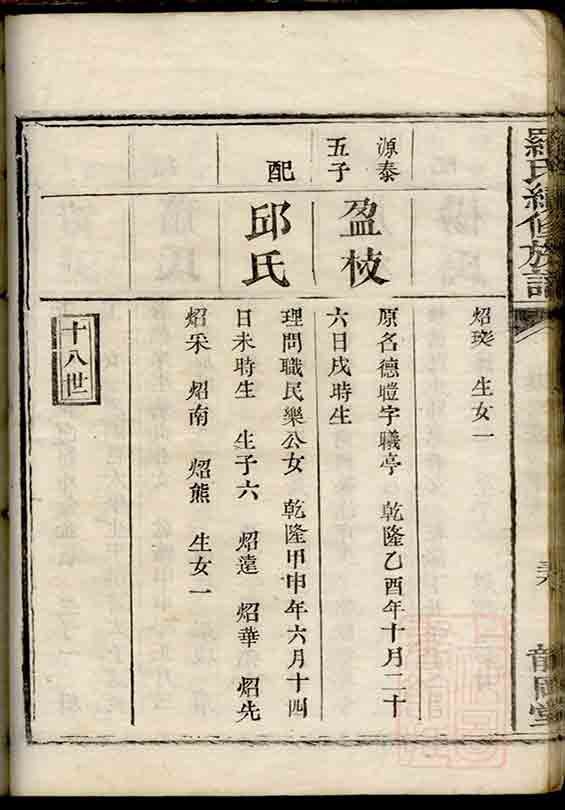 羅氏續修族譜
炤瓊 生女一
源泰五子
盈枝
原名德暟字曦亭 乾隆乙酉年十月二十
六日戌時生
配
邱氏
理問職民樂公女 乾隆甲申年六月十四
日未時生 生子六 炤遠 炤華 炤先
炤采 炤南 炤熊 生女一
十八世